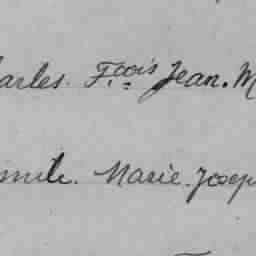 arles. F.çois Jean. M
mile. Marie. Josep